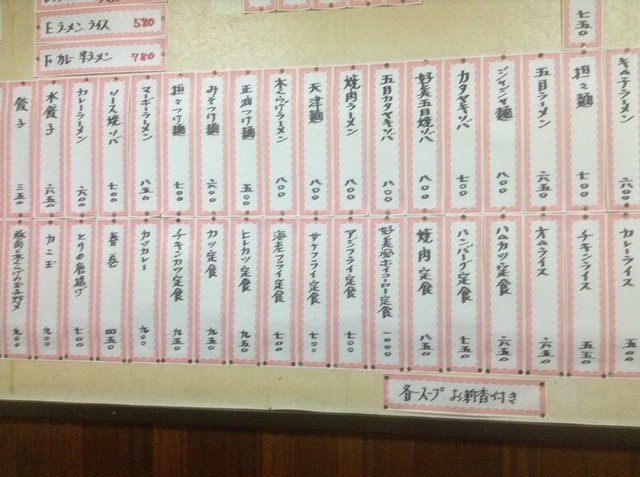 Eラーメンライス 580
Fカレー半ラーメン 780
七五〇
キムチラーメン 六〇〇
担々麺 七〇〇
五目ラーメン 六五〇
ジャジャ麺 八〇〇
カタヤキソバ 七〇〇
好美五目焼ソバ 八〇〇
五目カタヤキソバ 八〇〇
焼肉ラーメン 八〇〇
天津麺 八〇〇
木くらげラーメン 八〇〇
正油つけ麺 五〇〇
みそつけ麺 六〇〇
担々つけ麺 七〇〇
マーボーラーメン 八五〇
ソース焼ソバ 七〇〇
カレーラーメン 六〇〇
水餃子 六五〇
餃子 三五〇
カレーライス 五〇〇
チキンライス 五五〇
オムライス 六五〇
ハムカツ定食 六五〇
ハンバーグ定食 七五〇
焼肉定食 八五〇
好美風ホイコーロー定食 一〇〇〇
アジフライ定食 七〇〇
サケフライ定食 七〇〇
海老フライ定食 七〇〇
ヒレカツ定食 九五〇
カツ定食 九五〇
チキンカツ定食 九五〇
カツカレー 九〇〇
春巻 四五〇
とりの唐揚げ 七〇〇
カニ玉 九〇〇
豚肉と木クラゲの玉子炒メ 九〇〇
各スープ お新香付き